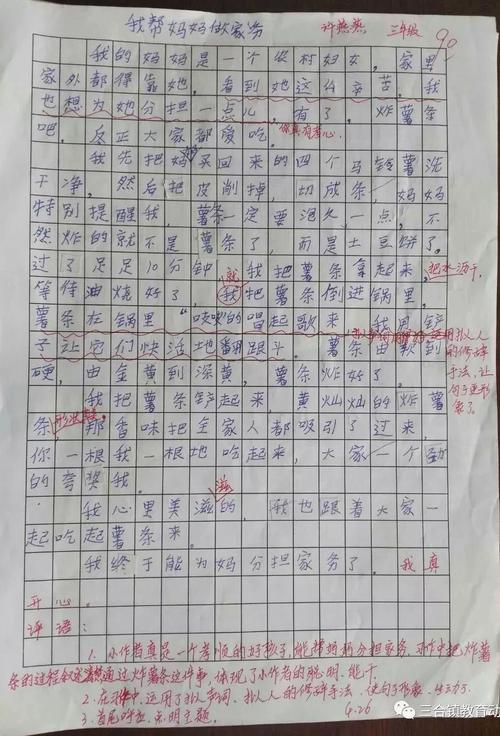 我帮妈妈做家务
许燕燕 三年级
90
我的妈妈是一个农村妇女,家里
家外都得靠她。看到她这么辛苦,我
也想为她分担一点儿,有了,炸薯条
吧,反正大家都爱吃。你真有孝心。
我先把妈买回来的四个马铃薯洗
干净,然后把皮削掉,切成条,妈妈
特别提醒我,薯条一定要泡久一点,不
然炸的就不是薯条了,而是土豆饼了。
过了足足10分钟,我把薯条拿起来,把水沥干,
等待油烧好了,就我把薯条倒进锅里,
薯条在锅里“吱吱”的唱起歌来,我用铲
子让它们快活地翻跟斗。薯条由软到
硬,由金黄到深黄,薯条炸好了。
运用拟人
的修辞
手法,让
句子更形
象了。
我把薯条铲起来,黄灿灿的炸薯
条,那香味把全家人都吸引了过来,
你一根我一根地吃起来,大家一个劲
的夸奖我。
滋
我心里美滋的,我也跟着大家一
起吃起薯条来。
我终于能为妈分担家务了,我真
开心。
评语:
1.小作者真是一个孝顺的好孩子,能帮妈妈分担家务,习作中把炸薯
条的过程叙述清楚,通过炸薯条这件事,体现了小作者的聪明、能干。
2.在习作中,运用了拟声词、拟人的修辞手法,使句子形象、生动了。
3.首尾呼应,点明主题。
6.26
三合镇教育动